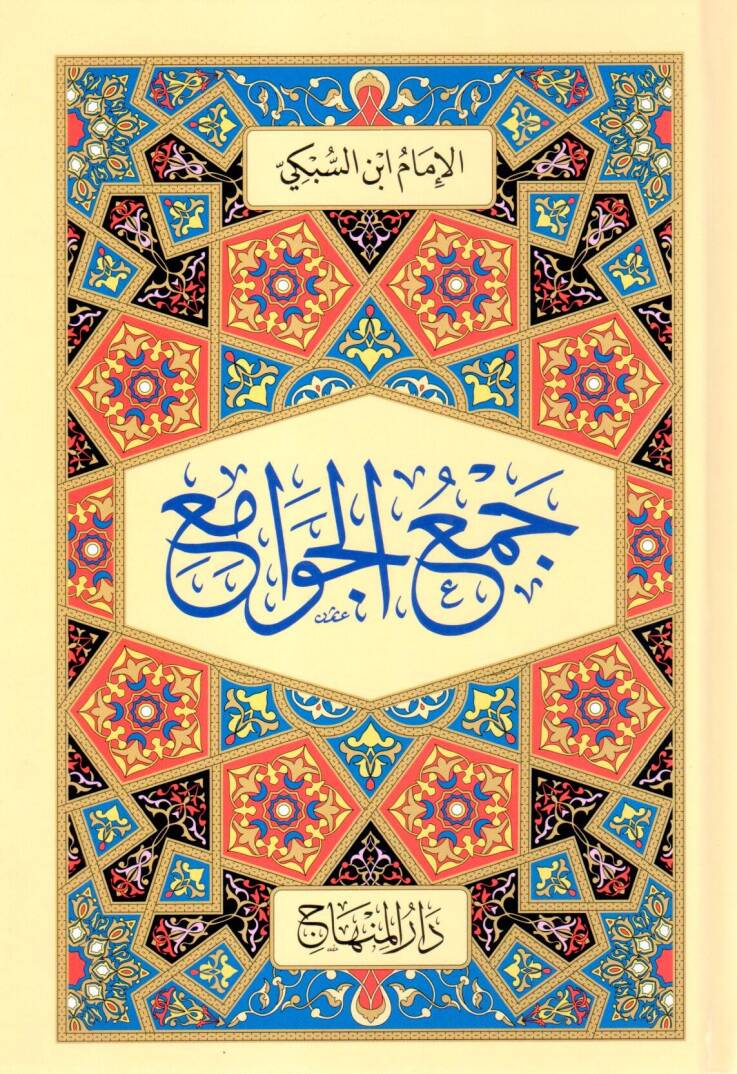 الإِمَامُ ابْنُ السُّبْكِيّ
جَمْعُ الجَوَامِعِ
دَارُ المِنْهَاجِ